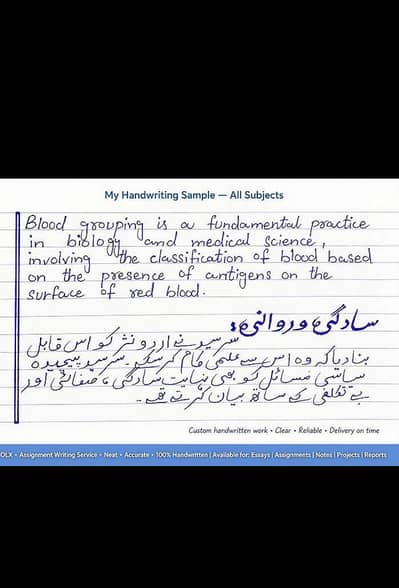 My Handwriting Sample — All Subjects
Blood grouping is a fundamental practice
in biology and medical science,
involving the classification of blood based
on the presence of antigens on the
surface of red blood.
سادگی و روانی:
سرسید نے اردو نثر کو اس قابل
بنا دیا کہ وہ اس سے علمی کام کر سکے۔ سرسید پیچیدہ
سیاسی مسائل کو بھی نہایت سادگی، صفائی اور
بے تکلفی کے ساتھ بیان کرتے تھے۔
Custom handwritten work • Clear • Reliable • Delivery on time
OLX • Assignment Writing Service • Neat • Accurate • 100% Handwritten | Available for: Essays | Assignments | Notes | Projects | Reports